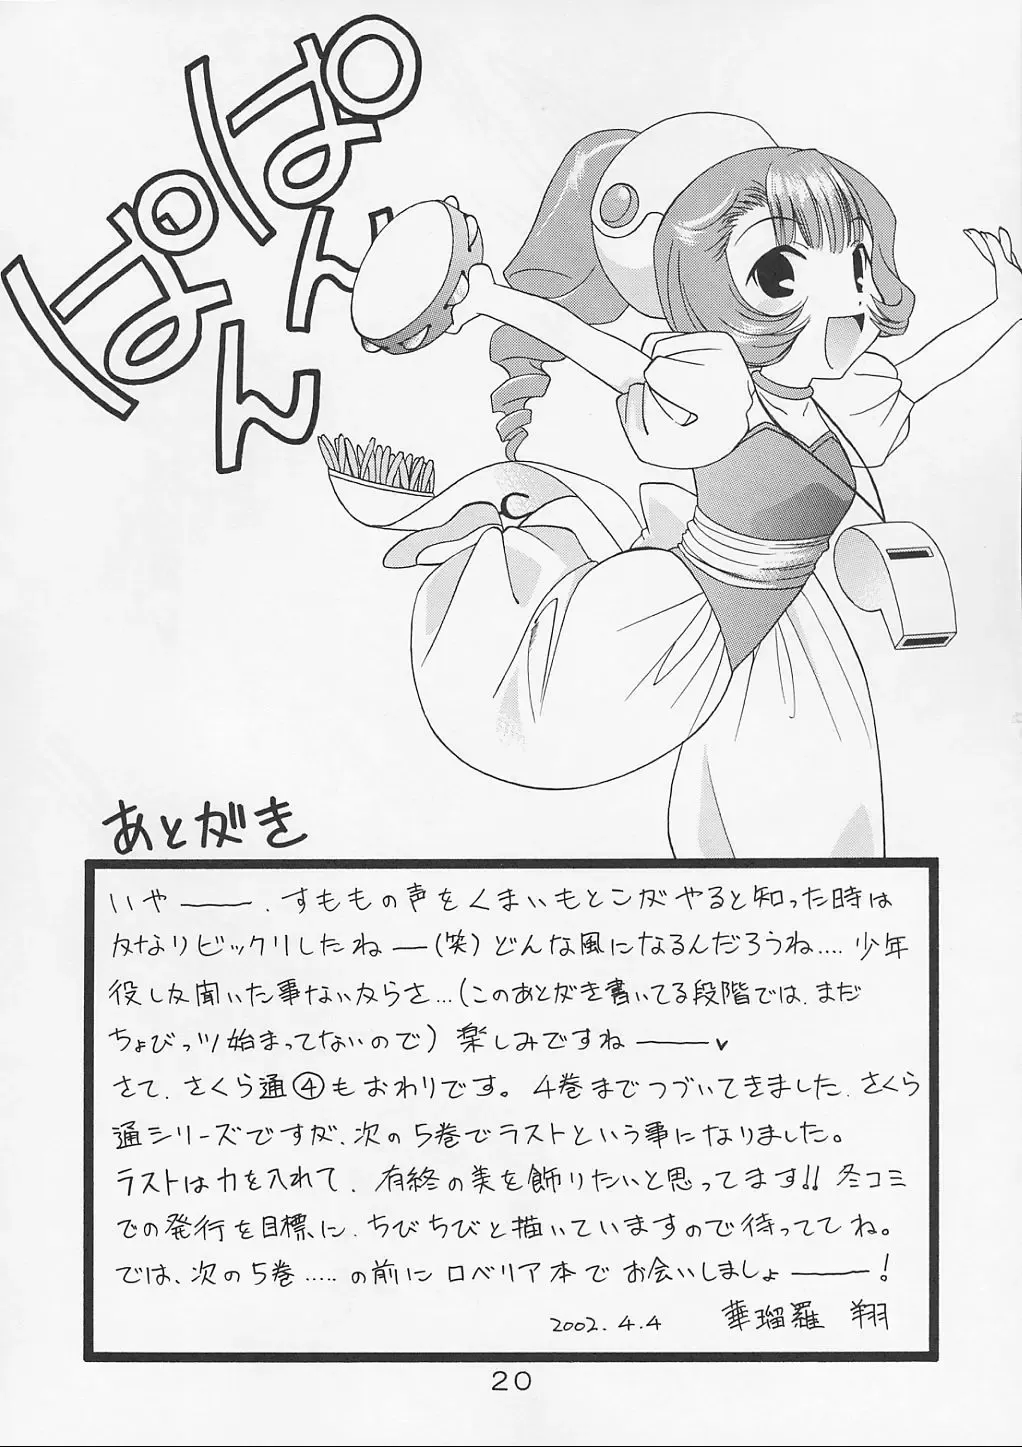 ぱぱん
ぱん
あとがき
いや――、すももの声をくまいもとこがやると知った時は
かなりビックリしたねー(笑)どんな風になるんだろうね....少年
役しか聞いた事ないからさ...(このあとがき書いてる段階では、まだ
ちょびっツ始まってないので)楽しみですね――♥
さて、さくら通④もおわりです。4巻までつづいてきました、さくら
通シリーズですが、次の5巻でラストという事になりました。
ラストは力を入れて、有終の美を飾りたいと思ってます!!冬コミ
での発行を目標に、ちびちびと描いていますので待っててね。
では、次の5巻.....の前にロベリア本でお会いしましょ――!
2002.4.4 華瑠羅 翔
20